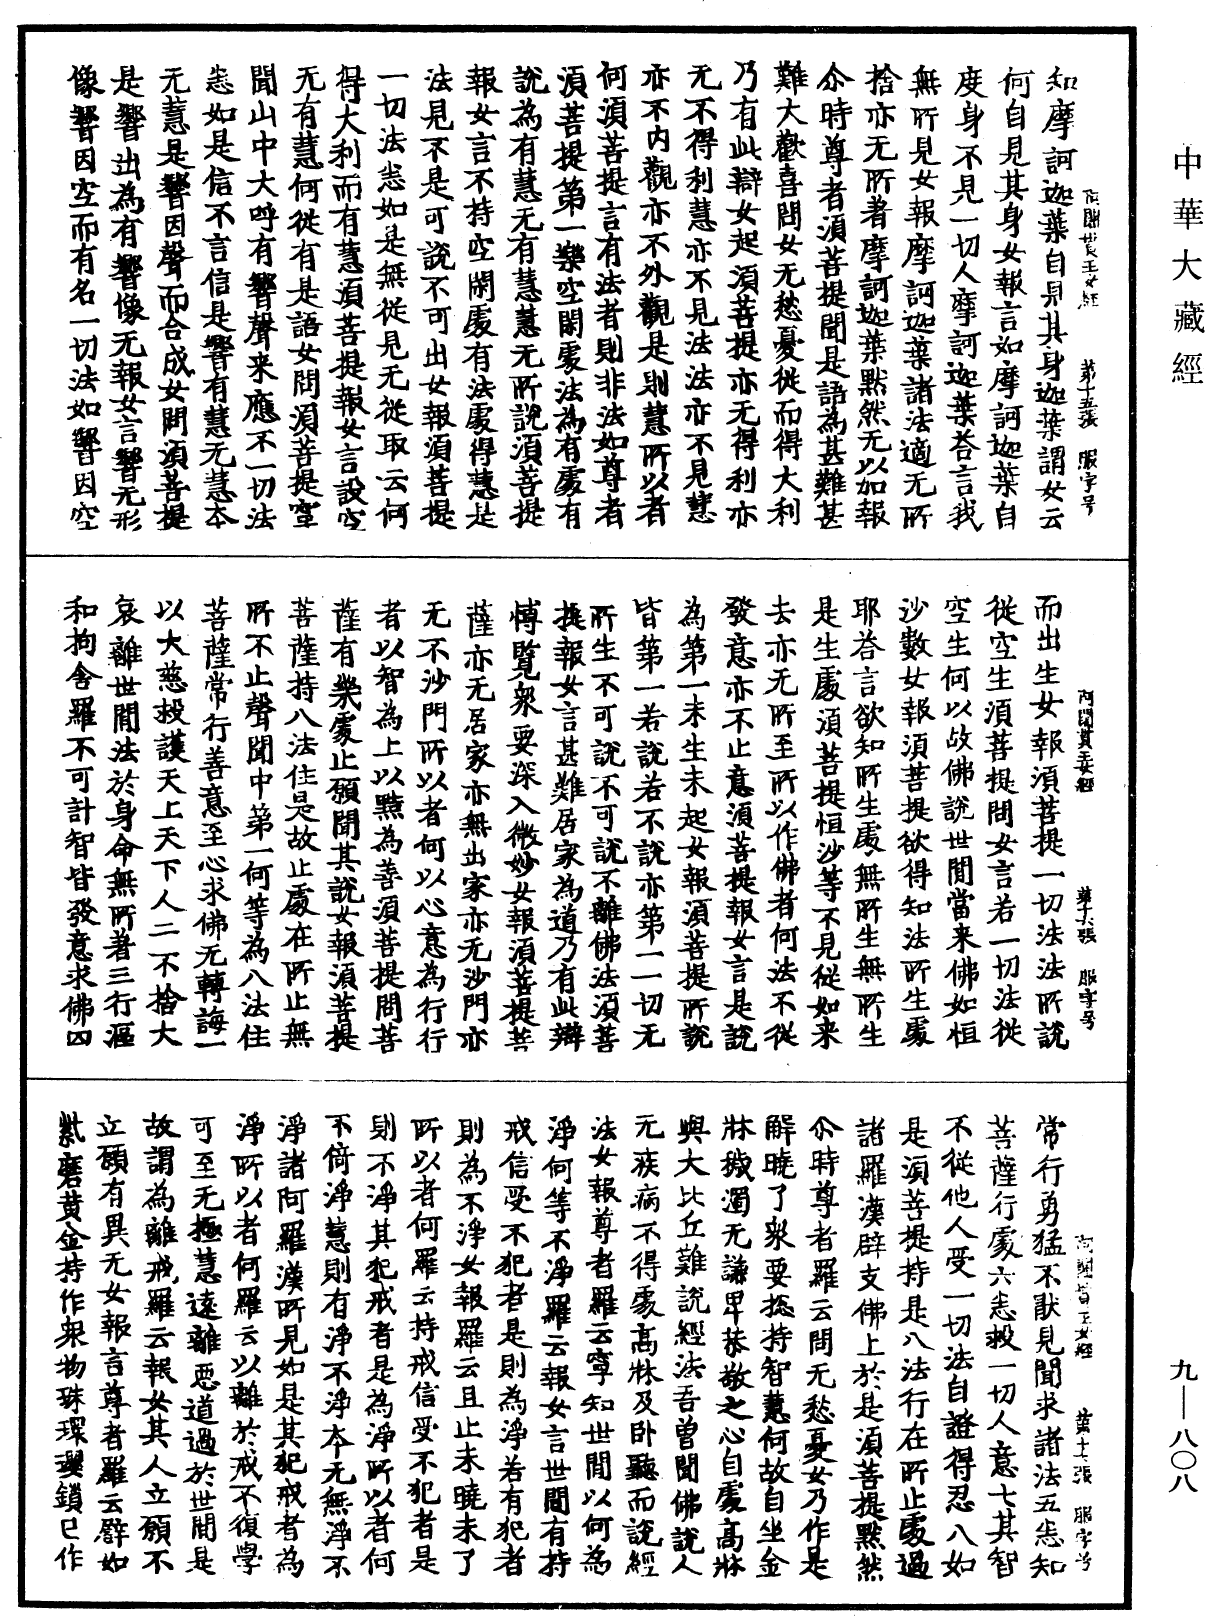 中華大藏經
阿闍貰王女經　第十五張　服字号
知摩訶迦葉自見其身迦葉謂女云
何自見其身女報言如摩訶迦葉自
度身不見一切人摩訶迦葉荅言我
無所見女報摩訶迦葉諸法適无所
捨亦无所著摩訶迦葉默然无以加報
尒時尊者湏菩提聞是語為甚難甚
難大歡喜問女无愁憂從而得大利
乃有此辯女起湏菩提亦无得利亦
无不得利慧亦不見法亦不見慧
亦不内觀亦不外觀是則慧所以者
何湏菩提言有法者則非法如尊者
湏菩提第一樂空閑處法為有處有
說為有慧无有慧慧无所說湏菩提
報女言不持空閑處有法處得慧是
法見不是可說不可出女報湏菩提
一切法悉如是無從見无從取云何
得大利而有慧湏菩提報女言設空
无有慧何從有是語女問湏菩提寧
聞山中大呼有響聲来應不一切法
悉如是信不言信是響有慧无慧本
无慧是響因聲而合成女問湏菩提
是響出為有響像无報女言響无形
像響因空而有名一切法如響因空
阿闍貰王女經　第十六張　服字号
而出生女報湏菩提一切法法所說
從空生湏菩提問女言若一切法從
空生何以故佛說世間當来佛如恒
沙數女報湏菩提欲得知法所生處
耶荅言欲知所生處無所生無所生
是生處湏菩提恒沙等不見從如来
去亦无所至所以作佛者何法不從
發意亦不止意湏菩提報女言是說
為第一未生未起女報湏菩提所說
皆第一若說若不說亦第一一切无
所生不可說不可說不離佛法湏菩
提報女言甚難居家為道乃有此辯
慱覽衆要深入微妙女報湏菩提菩
薩亦无居家亦無出家亦无沙門亦
无不沙門所以者何以心意為行行
者以智為上以黠為善湏菩提問菩
薩有樂處止願聞其說女報湏菩提
菩薩持八法住是故止處在所止無
所不止聲聞中第一何等為八法住
菩薩常行善意至心求佛无轉誨一
以大慈救護天上天下人二不捨大
哀離世間法於身命無所著三行漚
和拘舍羅不可計智皆發意求佛四
阿闍貰王女經　第十七張　服字号
常行勇猛不猒見聞求諸法五悉知
菩薩行處六悉救一切人意七其智
不從他人受一切法自證得忍八如
是湏菩提持是八法行在所止處過
諸羅漢辟支佛上於是湏菩提默然
尒時尊者羅云問无愁憂女乃作是
解曉了衆要揔持智慧何故自坐金
牀穢濁无謙卑恭敬之心自處高牀
與大比丘難說經法吾曾聞佛說人
无疾病不得處高牀及卧聽而說經
法女報尊者羅云寧知世間以何為
淨何等不淨羅云報女言世間有持
戒信受不犯者是則為淨若有犯者
則為不淨女報羅云且止未曉未了
所以者何羅云持戒信受不犯者是
則不淨其犯戒者是為淨所以者何
不倚淨慧則有淨不淨本无無淨不
淨諸阿羅漢所見如是其犯戒者為
淨所以者何羅云以離於戒不復學
可至无極慧遠離惡道過於世間是
故謂為離戒羅云報女其人立願不
立願有異无女報言尊者羅云譬如
紫磨黄金持作衆物珠環瓔鎖已作
九—八〇八